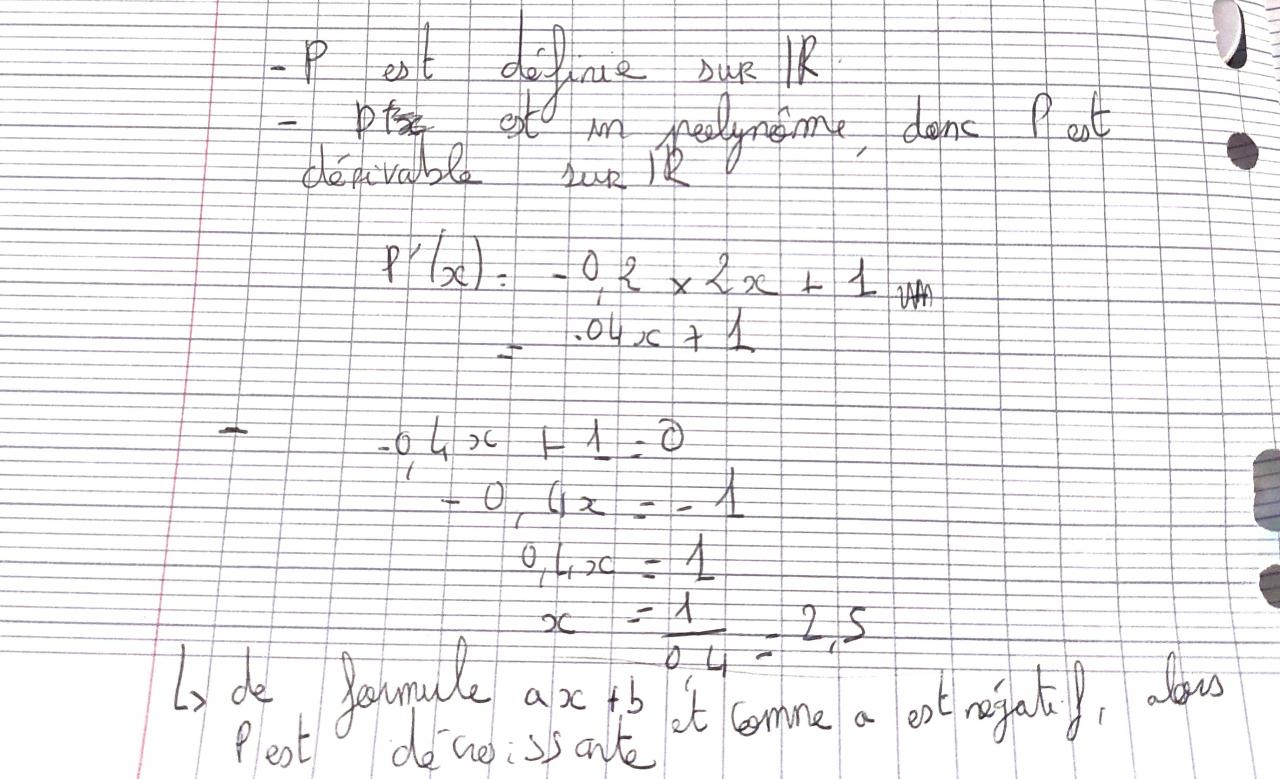 - P est définie sur IR
- P est un polynôme, donc P est
dérivable sur IR
P'(x) = -0,2 x 2x + 1
= -04x + 1
- -0,4x + 1 = 0
- 0,4x = - 1
0,4x = 1
x = 1/0,4 = 2,5
↳ de formule ax+b et comme a est négatif, alors
P est décroissante